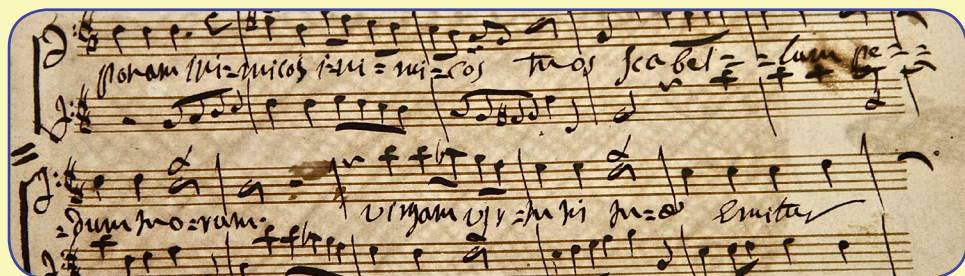 ponam ini=micos i=ni=mi=cos tuos scabel= =lum pe=
=dum tuo=rum. virgam vir=tutis tu=æ Emittet